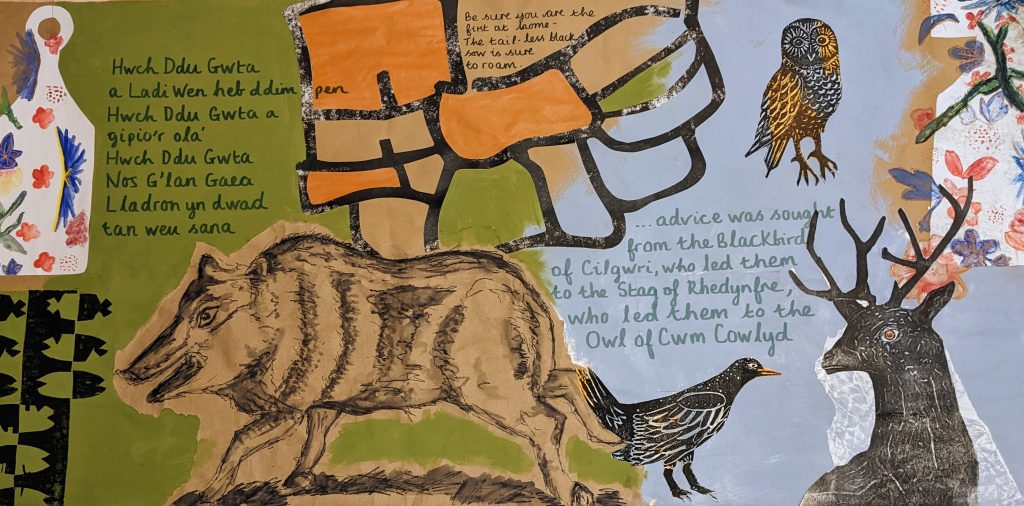 Hwch Ddu Gwta
a Ladi Wen heb ddim pen
Hwch Ddu Gwta a
gipio'r ola'
Hwch Ddu Gwta
Nos G'lan Gaea
Lladron yn dwad
tan weu sana
Be sure you are the
first at home -
The tail-less black
sow is sure
to roam.
... advice was sought
from the Blackbird
of Cilgwri, who led them
to the Stag of Rhedynfre,
who led them to the
Owl of Cwm Cowlyd